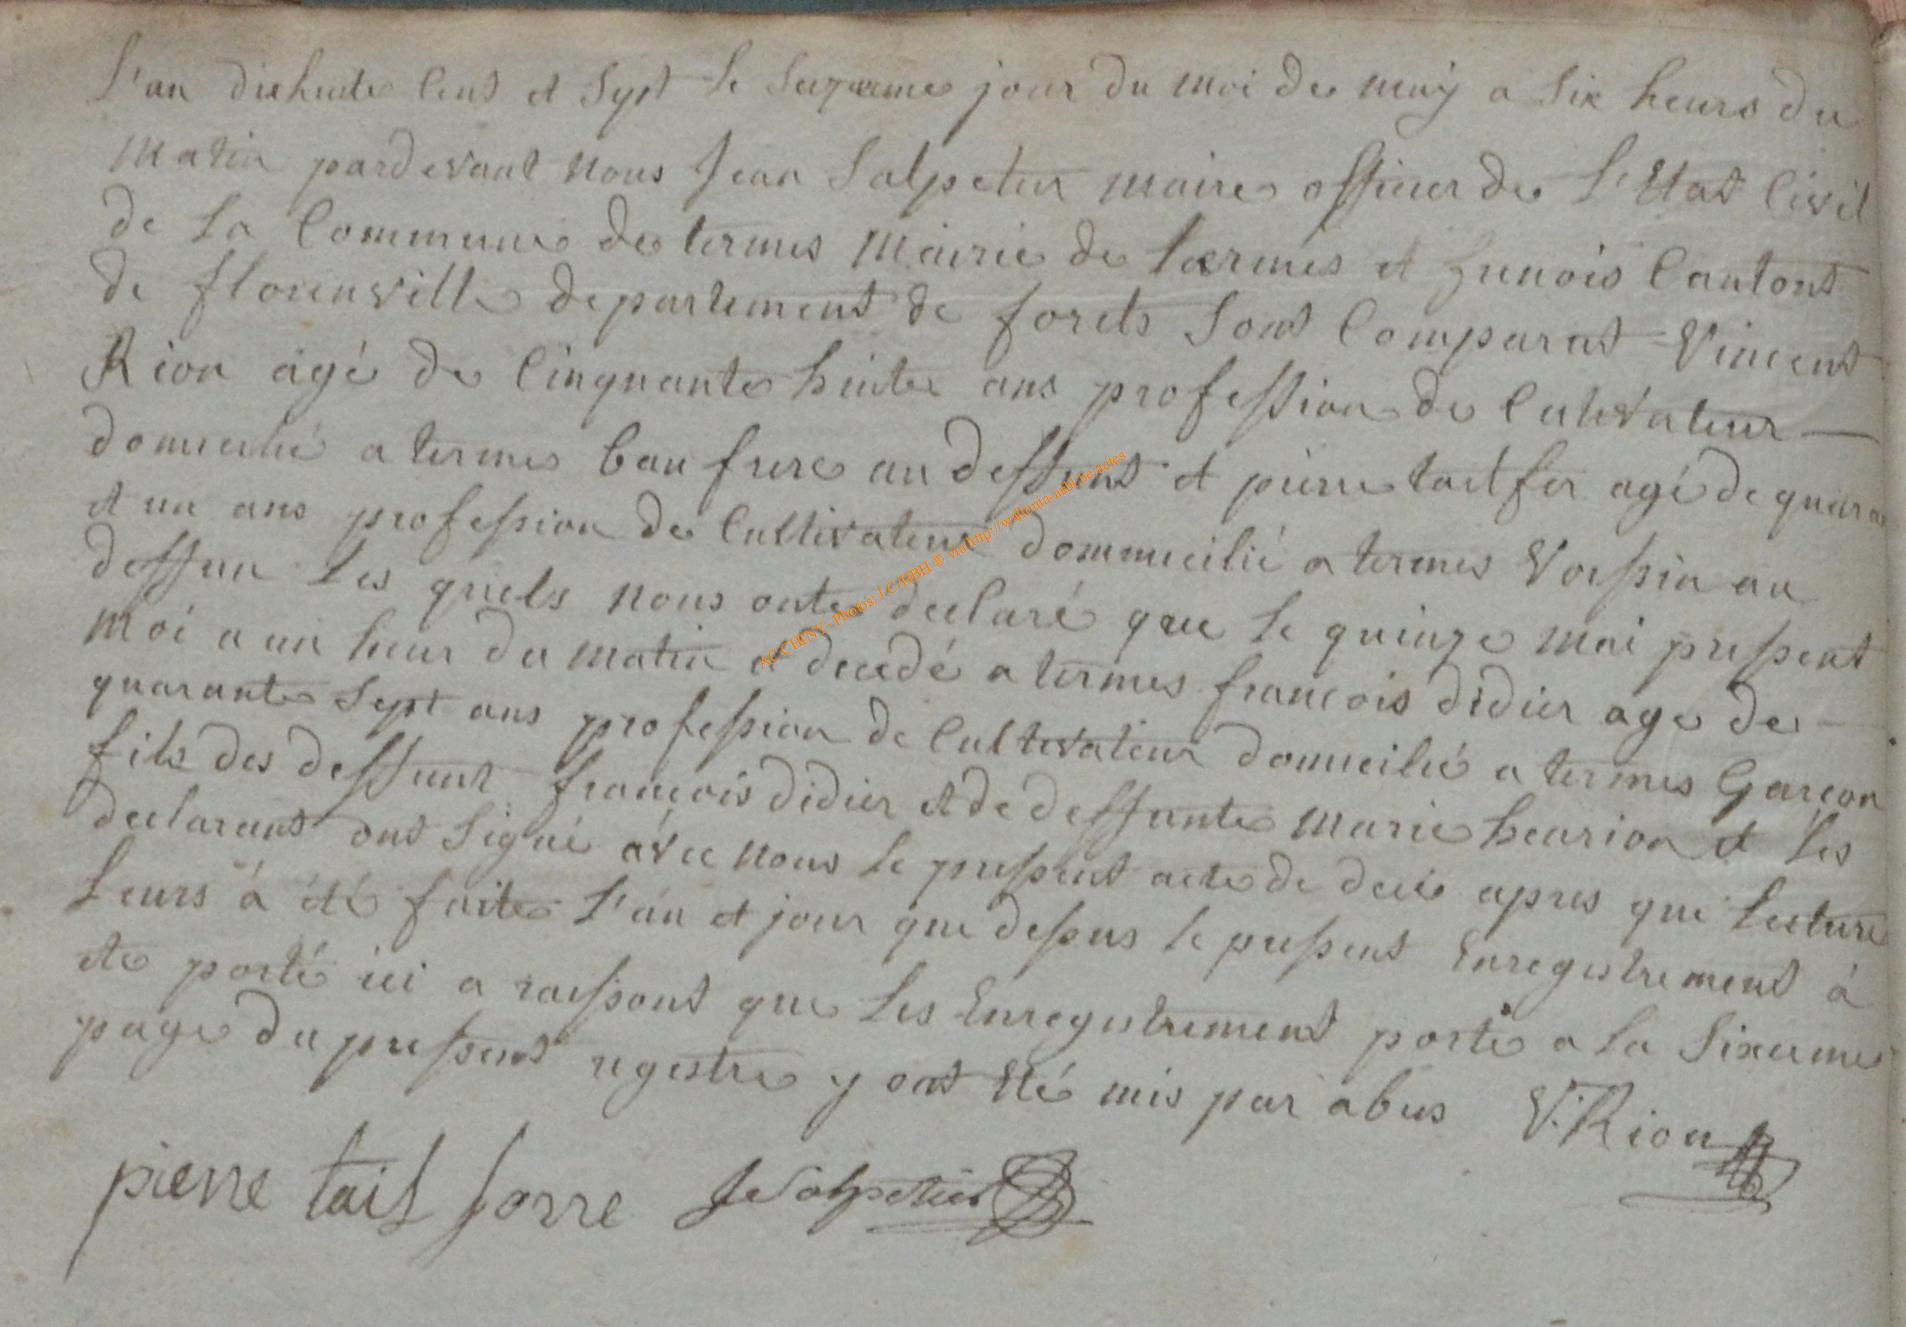 L'an dixhuite Cent et Sept le Seizieme jour du moi de may a Six heurs du
Matin pardevant Nous Jean Salpeteur maire officier de L'Etat Civil
de La Commune de termes Mairie de termes et Cantont
de florenville departement de forets Sont Comparut Vincent
Rion agé de Cinquante huite ans profession de Cultivateur
domicilié a termes bau frere au deffunt et pierre taitfer agé de quarante
et un ans profession de Cultivateur dommicilié a termes Voisin au
deffun Les quels nous onte declaré que le quinze moi present
Moi a un heur du matin a decedé a termes françois didier age de
quarante Sept ans profession de Cultivateur domicilié a termes Garçon
fils des deffunt françois didier et de deffunte Marie henrion et Les
declarant ont Signé avec nous le present acte de decé apres que Lecture
Leurs à été faite L'an et jour que dessus le present Enregistrement à
ete porté ici a raissont que Les Enregistrement porté a La Sixieme
page du present registre y ont Eté mis par abus V. Rion
pierre tait forre J Salpetier
ACCHENY - Photos: J.C. HBH ® via http://wallonia-asbl.be/actes